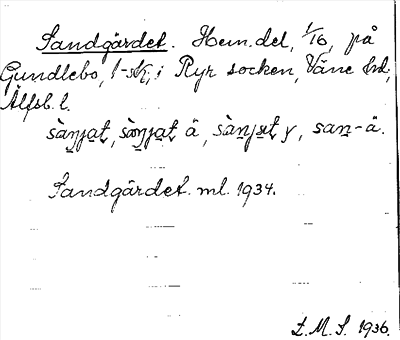 Sandgärdet. Hem.del, 1/16, på
Gundlebo, 1 sk, i Ryr socken, Väne hd,
Älfsb. l.
sàṉjaṯ, sàṉjaṯ ä, sàṉjɪṯ y, saṉ-ä.
Sandgärdet. ml. 1934.
L.M.S. 1936.